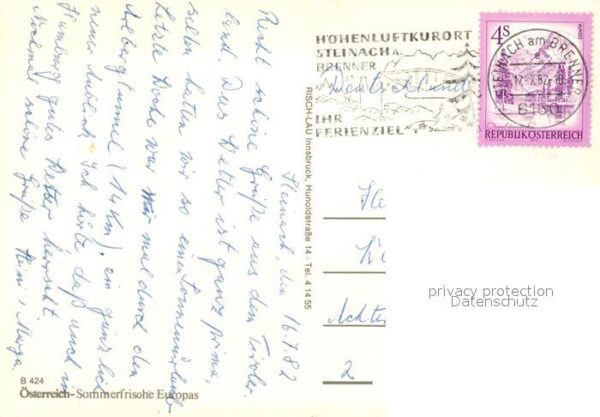 Steinach, den 16.7.82
Recht schöne Grüße aus dem Tiroler
Land. Das Wetter ist ganz prima,
selten hatten wir so einen Sommerurlaub.
Letzte Woche war mal durch den
Arlbergtunnel (14 Km), ein ganz
neuer Anblick. Ich hörte, daß auch in
Hamburg gutes Wetter herrscht.
Nochmal schöne Grüße
HÖHENLUFTKURORT
STEINACH A.
BRENNER
IHR
FERIENZIEL
Deutschland
4S
ALMSEE
REPUBLIK ÖSTERREICH
STEINACH am BRENNER
6150
RISCH-LAU Innsbruck, Hunoldstraße 14 - Tel. 4 14 55
Achter
2
privacy protection
Datenschutz
B 424
Österreich - Sommerfrische Europas